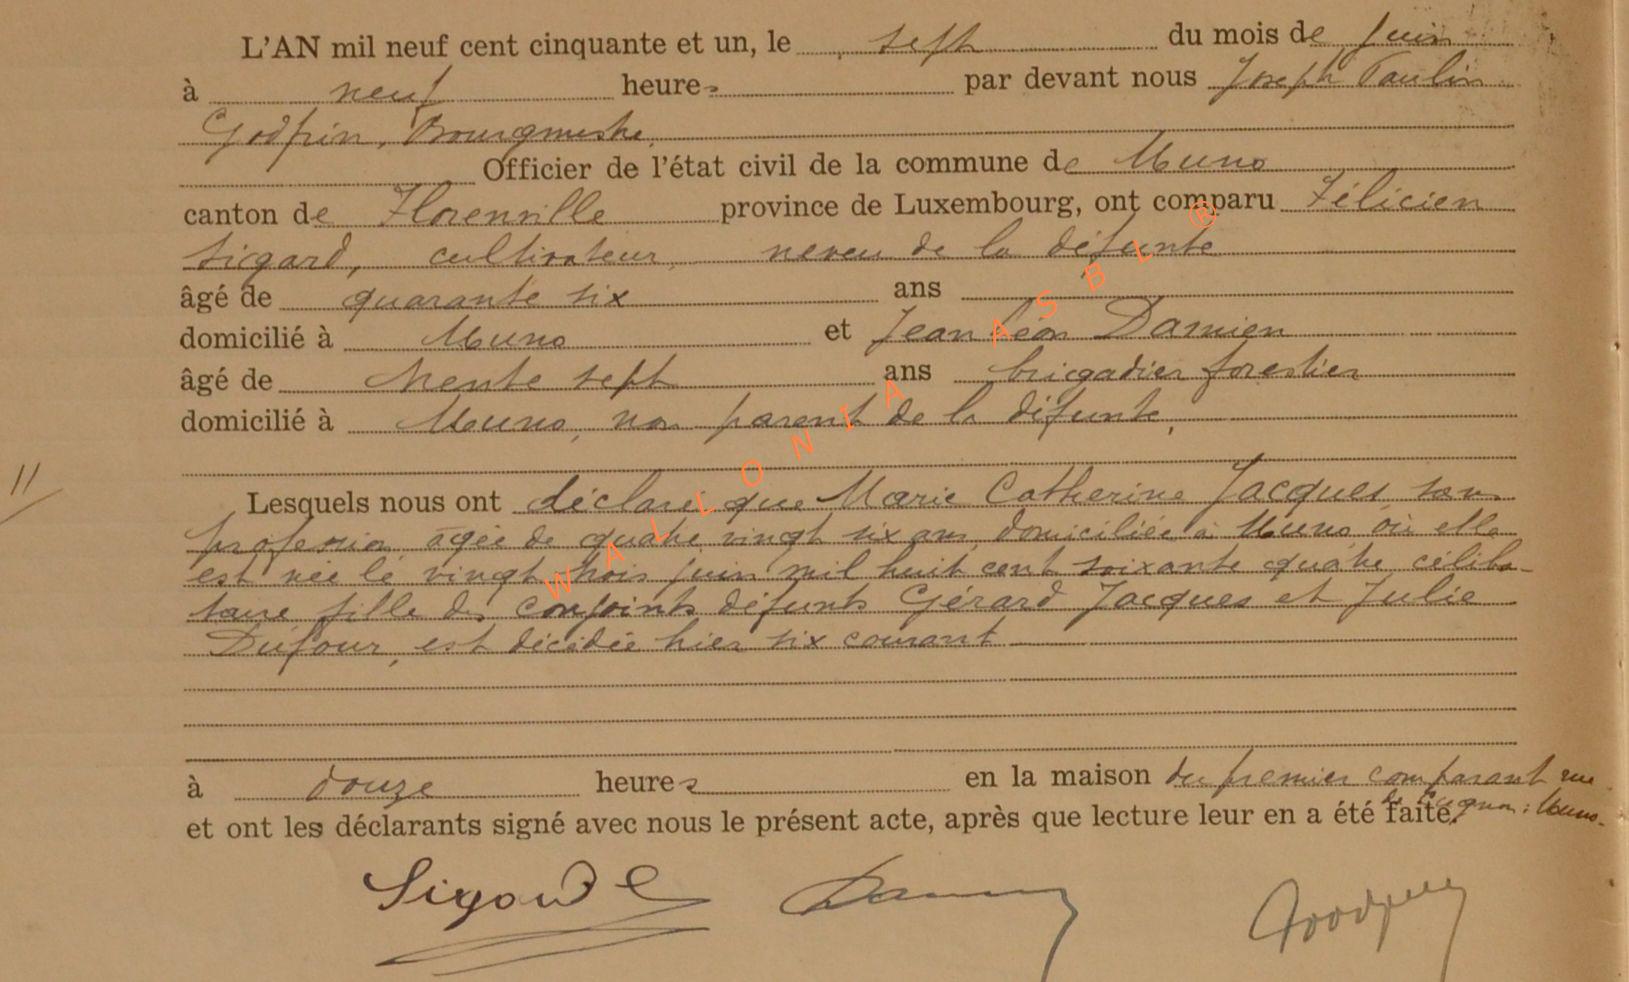 L'AN mil neuf cent cinquante et un, le sept du mois de Juin
à neuf heures par devant nous Joseph Paulin
Godfrin, Bourgmestre,
Officier de l'état civil de la commune de Muno
canton de Florenville province de Luxembourg, ont comparu Félicien
Sigard, cultivateur, neveu de la défunte
âgé de quarante six ans
domicilié à Muno et Jean Léon Damien
âgé de trente sept ans brigadier forestier
domicilié à Muno, non parent de la défunte,
11
Lesquels nous ont déclaré que Marie Catherine Jacques sans
profession, âgée de quatre vingt six ans, domiciliée à Muno où elle
est née le vingt trois juin mil huit cent soixante quatre céliba-
taire, fille des conjoints défunts Gérard Jacques et Julie
Dufour, est décédée hier six courant
à douze heures en la maison du premier comparant rue
de : Muno.
et ont les déclarants signé avec nous le présent acte, après que lecture leur en a été faite.
Sigard Damien Godfrin
WALLONIA ASBL ®